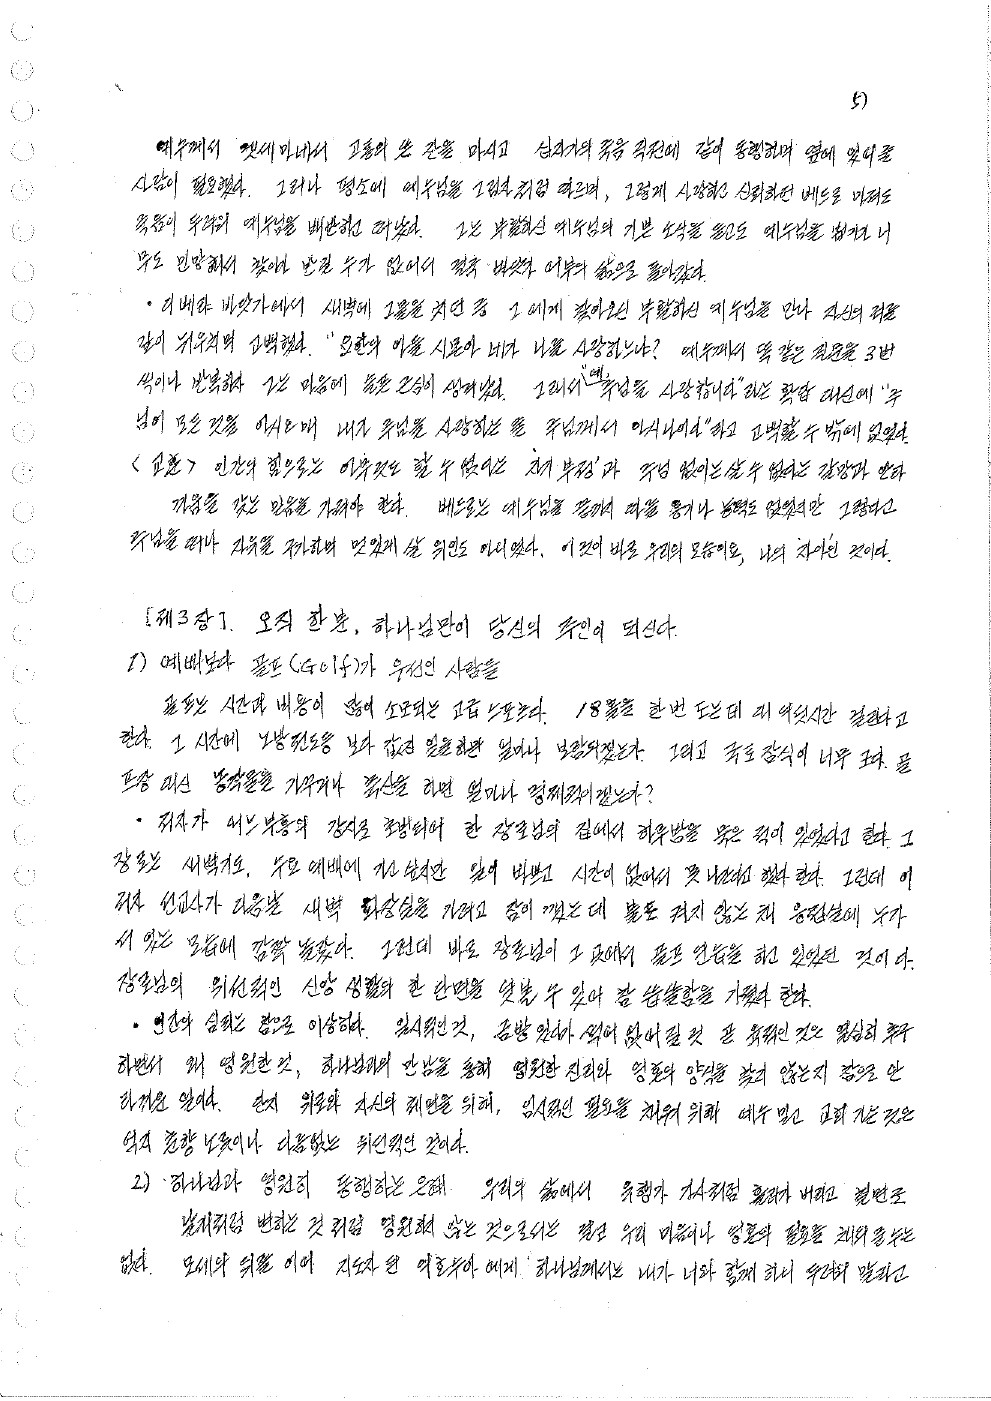 5)
예수께서 겟세마네서 고통의 쓴 잔을 마시고 십자가의 죽음 직전에 같이 동행하며 옆에 있어줄
사람이 필요했다. 그러나 평소에 예수님을 그림자처럼 따르며, 그렇게 사랑하고 신뢰하던 베드로 마저도
죽음이 두려워 예수님을 배반하고 떠났다. 그는 부활하신 예수님의 기쁜 소식을 듣고도 예수님을 뵙기가 너
무도 민망해서 찾아가 만날 수가 없어서 결국 바닷가 어부의 삶으로 돌아갔다.
• 디베랴 바닷가에서 새벽에 그물을 치던 중 그에게 찾아오신 부활하신 예수님을 만나 자신의 죄를
깊이 뉘우치며 고백했다. "요한의 아들 시몬아 네가 나를 사랑하느냐? 예수께서 똑같은 질문을 3번
씩이나 반복하자 그는 마음에 슬픈 근심이 생겨났다. 그래서 "예, 주님을 사랑합니다"라는 확답 대신에 "주
님이 모든 것을 아시오매 내가 주님을 사랑하는 줄 주님께서 아시나이다"하고 고백할 수 밖에 없었다.
<교훈> 인간의 힘으로는 아무것도 할 수 없다는 '자기 부정'과 주님 없이는 살 수 없다는 갈망과 안타
까움을 갖는 믿음을 가져야 한다. 베드로는 예수님을 끝까지 따를 용기나 능력도 없었지만 그렇다고
주님을 떠나 자유를 구가하며 멋있게 살 위인도 아니었다. 이것이 바로 우리의 모습이요, 나의 '자아'인 것이다.
[제3장]. 오직 한 분, 하나님만이 당신의 주인이 되신다.
1) 예배보다 골프(Golf)가 우선인 사람들
골프는 시간과 비용이 많이 소모되는 고급 스포츠다. 18홀을 한번 도는데 대여섯시간 걸린다고
한다. 그 시간에 노방전도등 보다 값진 일을 하면 얼마나 보람되겠는가. 그리고 국토 잠식이 너무 크다. 골
프장 대신 농작물을 가꾸거나 축산을 하면 얼마나 경제적이겠는가?
• 저자가 어느 부흥회 강사로 초빙되어 한 장로님의 집에서 하룻밤을 묵은 적이 있었다고 한다. 그
장로는 새벽기도, 수요 예배에 가고 싶지만 일이 바쁘고 시간이 없어서 못 나간다고 했다 한다. 그런데 이
저자 선교사가 다음날 새벽 화장실을 가려고 잠이 깼는데 불도 켜지 않는 채 응접실에 누가
서 있는 모습에 깜짝 놀랐다. 그런데 바로 장로님이 그 곳에서 골프 연습을 하고 있었던 것이다.
장로님의 위선적인 신앙 생활의 한 단면을 엿볼 수 있어 참 씁쓸함을 가졌다 한다.
• 인간의 심리는 참으로 이상하다. 일시적인 것, 금방 있다가 썩어 없어질 것 곧 육적인 것은 열심히 추구
하면서 왜 영원한 것, 하나님과의 만남을 통해 영원한 진리와 영혼의 양식을 찾지 않는지 참으로 안
타까운 일이다. 단지 위로와 자신의 체면을 위해, 일시적인 필요를 채우기 위해 예수 믿고 교회 가는 것은
억지 춘향 노릇이나 다름없는 위선적인 것이다.
2) 하나님과 영원히 동행하는 은혜. 우리의 삶에서 유행가 가사처럼 흘러가 버리고 철만 되면
날씨처럼 변하는 것처럼 영원하지 않는 것으로서는 결코 우리 마음이나 영혼의 필요를 채워줄 수는
없다. 모세의 뒤를 이어 지도자 된 여호수아에게 하나님께서는 내가 너와 함께 하니 두려워 말라고